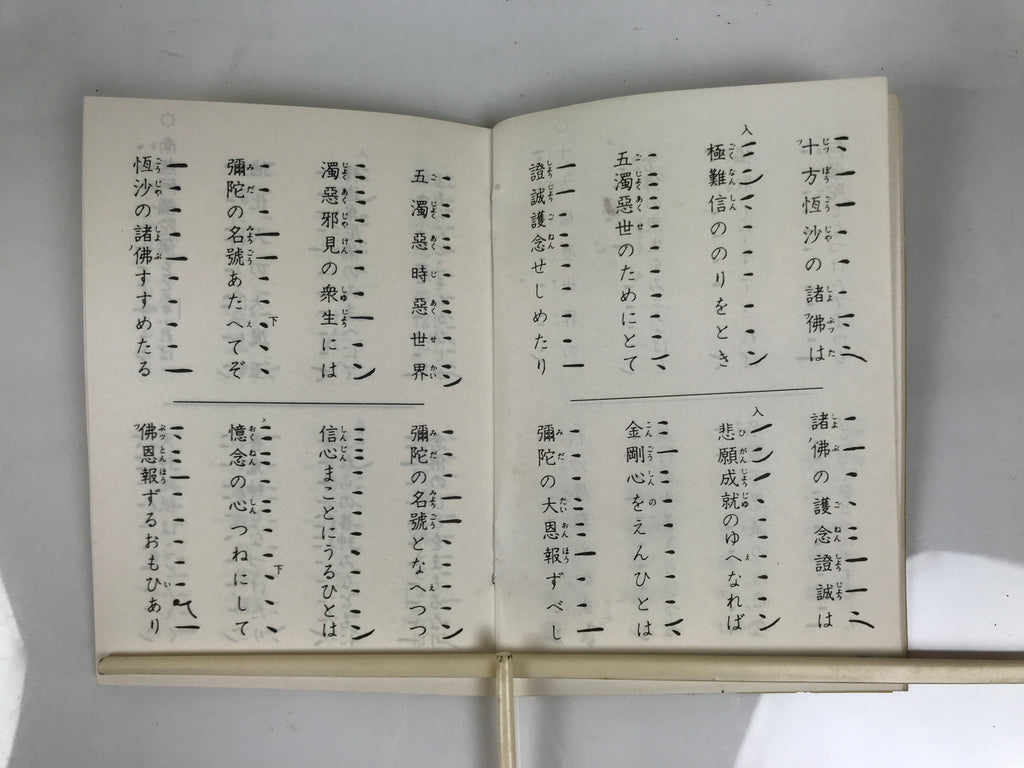 十方恆沙の諸佛は
極難信ののりをとき
五濁惡世のためにとて
證誠護念せしめたり
諸佛の護念證誠は
悲願成就のゆへなれば
金剛心をえんひとは
彌陀の大恩報ずべし
五濁惡時惡世界
濁惡邪見の衆生には
彌陀の名號あたへてぞ
恆沙の諸佛すすめたる
彌陀の名號となへつつ
信心まことにうるひとは
憶念の心つねにして
佛恩報ずるおもひあり